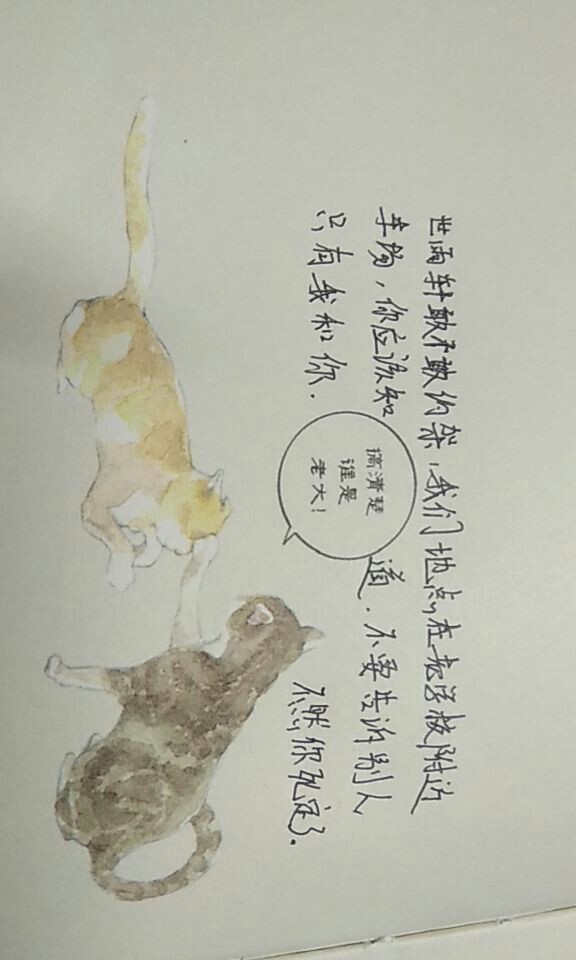 世雨轩敢不敢约架,我们地点在老学校附近
车场,你应该知道.不要告诉别人
只有我和你.不然你死定了.
搞清楚
谁是
老大!